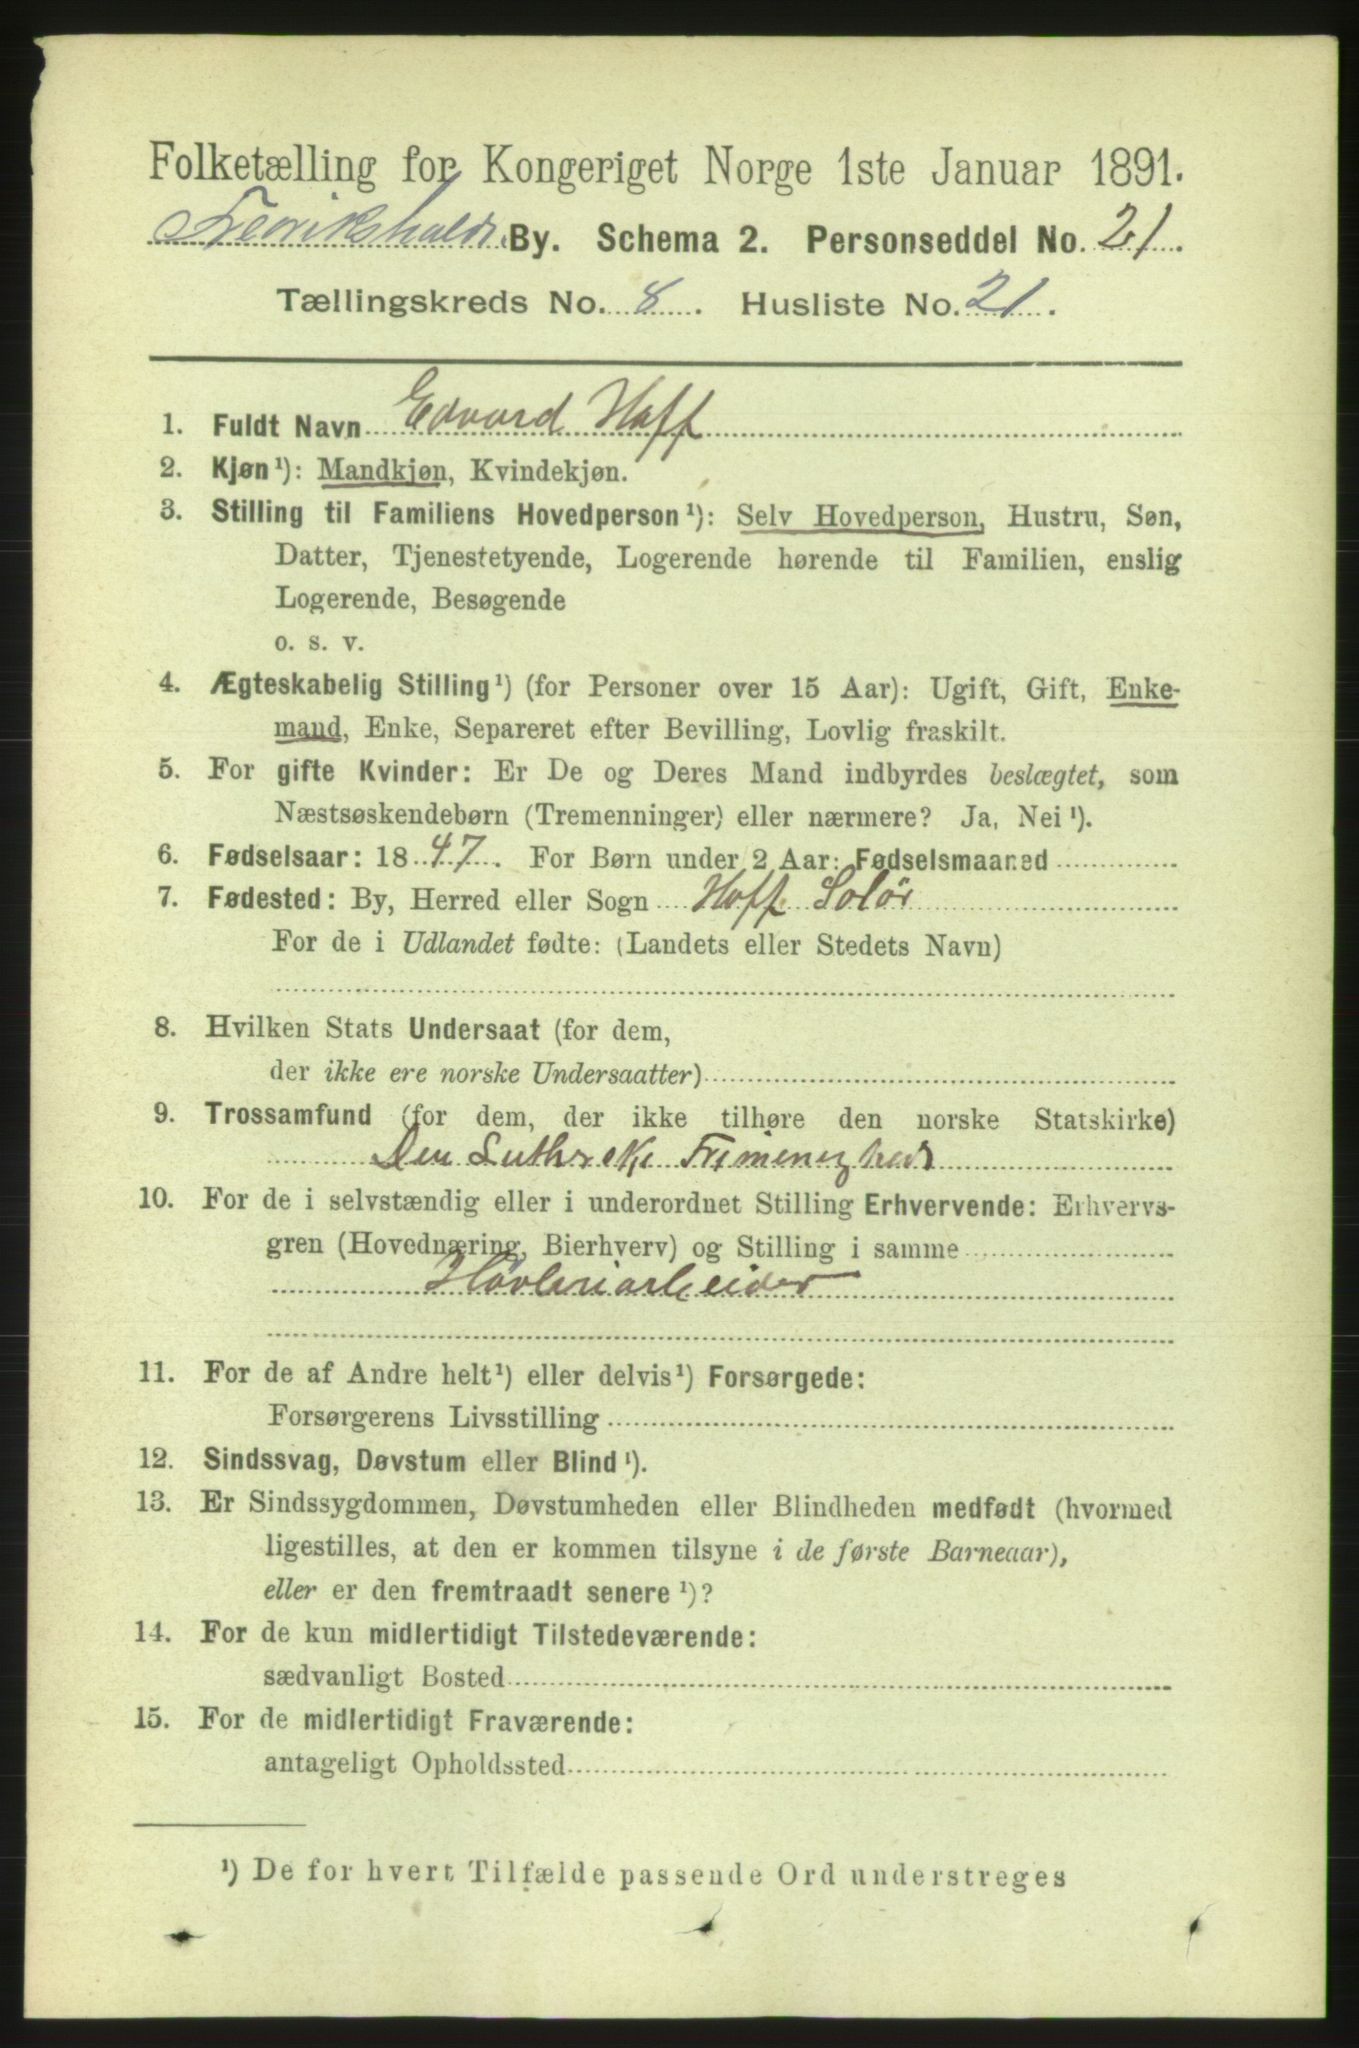 Folketælling for Kongeriget Norge 1ste Januar 1891.
Fredrikshalds By. Schema 2. Personseddel No. 21.
Tællingskreds No. 8. Husliste No. 21.
1. Fuldt Navn Edvard Hoff
2. Kjøn¹): Mandkjøn, Kvindekjøn.
3. Stilling til Familiens Hovedperson¹): Selv Hovedperson, Hustru, Søn,
Datter, Tjenestetyende, Logerende hørende til Familien, enslig
Logerende, Besøgende
o. s. v.
4. Ægteskabelig Stilling¹) (for Personer over 15 Aar): Ugift, Gift, Enke-
mand, Enke, Separeret efter Bevilling, Lovlig fraskilt.
5. For gifte Kvinder: Er De og Deres Mand indbyrdes beslægtet, som
Næstsøskendebørn (Tremenninger) eller nærmere? Ja, Nei¹).
6. Fødselsaar: 1847. For Børn under 2 Aar: Fødselsmaaned
7. Fødested: By, Herred eller Sogn Hoff Solør
For de i Udlandet fødte: (Landets eller Stedets Navn)
8. Hvilken Stats Undersaat (for dem,
der ikke ere norske Undersaatter)
9. Trossamfund (for dem, der ikke tilhøre den norske Statskirke)
Den Lutherske Frimenighed
10. For de i selvstændig eller i underordnet Stilling Erhvervende: Erhvervs-
gren (Hovednæring, Bierhverv) og Stilling i samme
Høvleriarbeider
11. For de af Andre helt¹) eller delvis¹) Forsørgede:
Forsørgerens Livsstilling
12. Sindssvag, Døvstum eller Blind¹).
13. Er Sindssygdommen, Døvstumheden eller Blindheden medfødt (hvormed
ligestilles, at den er kommen tilsyne i de første Barneaar),
eller er den fremtraadt senere¹)?
14. For de kun midlertidigt Tilstedeværende:
sædvanligt Bosted
15. For de midlertidigt Fraværende:
antageligt Opholdssted
¹) De for hvert Tilfælde passende Ord understreges